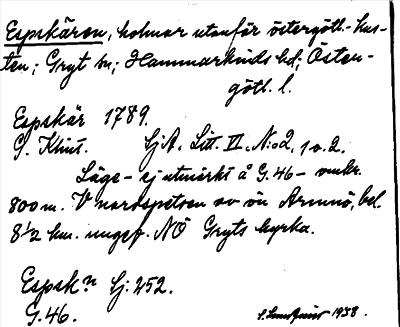 Espskären, holmar utanför östergötl.-kus-
ten; Gryt sn; Hammarkinds hd; Öster-
götl. l.
Espskär 1789.
G. Klint. Sj.A. Litt. II. N:o 2, 1 o. 2.
Läge - ej utmärkt å G. 46 - omkr.
800 m. V nordspetsen av ön Armnö, bel.
8½ km. ungef. NÖ Gryts kyrka.
Espsk:n Sj: 252.
G. 46.
1938.